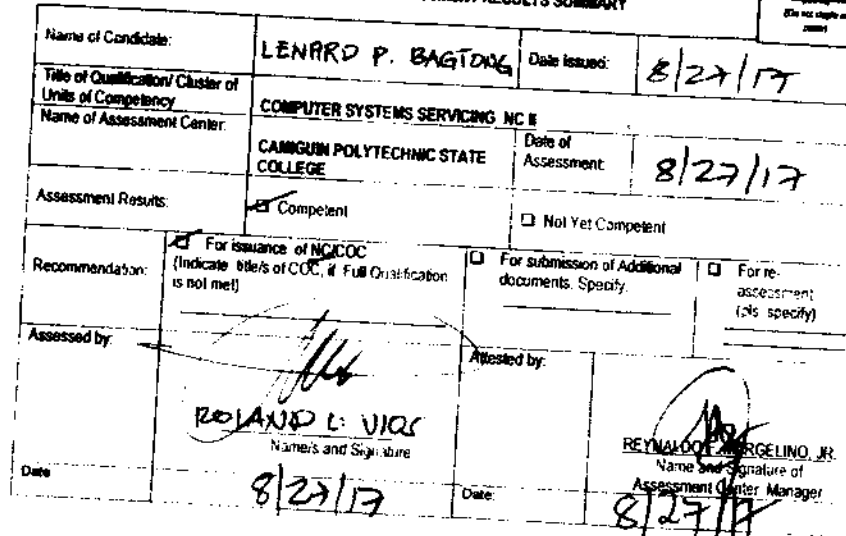 RESULTS SUMMARY
Name of Candidate:
LENARD P. BAGTONG
Date Issued:
8/27/17
Title of Qualification/ Cluster of
Units of Competency
COMPUTER SYSTEMS SERVICING NC II
Name of Assessment Center:
CAMIGUIN POLYTECHNIC STATE
COLLEGE
Date of
Assessment:
8/27/17
Assessment Results:
Competent
Not Yet Competent
Recommendation:
For issuance of NC/COC
(Indicate title/s of COC, if Full Qualification
is not met)
For submission of Additional
documents. Specify.
For re-
assessment
(pls. specify)
Assessed by:
ROLAND L.
Name/s and Signature
Attested by:
REYNALDO JR.
Name and Signature of
Assessment Center Manager
Date
8/27/17
Date:
8/27/17